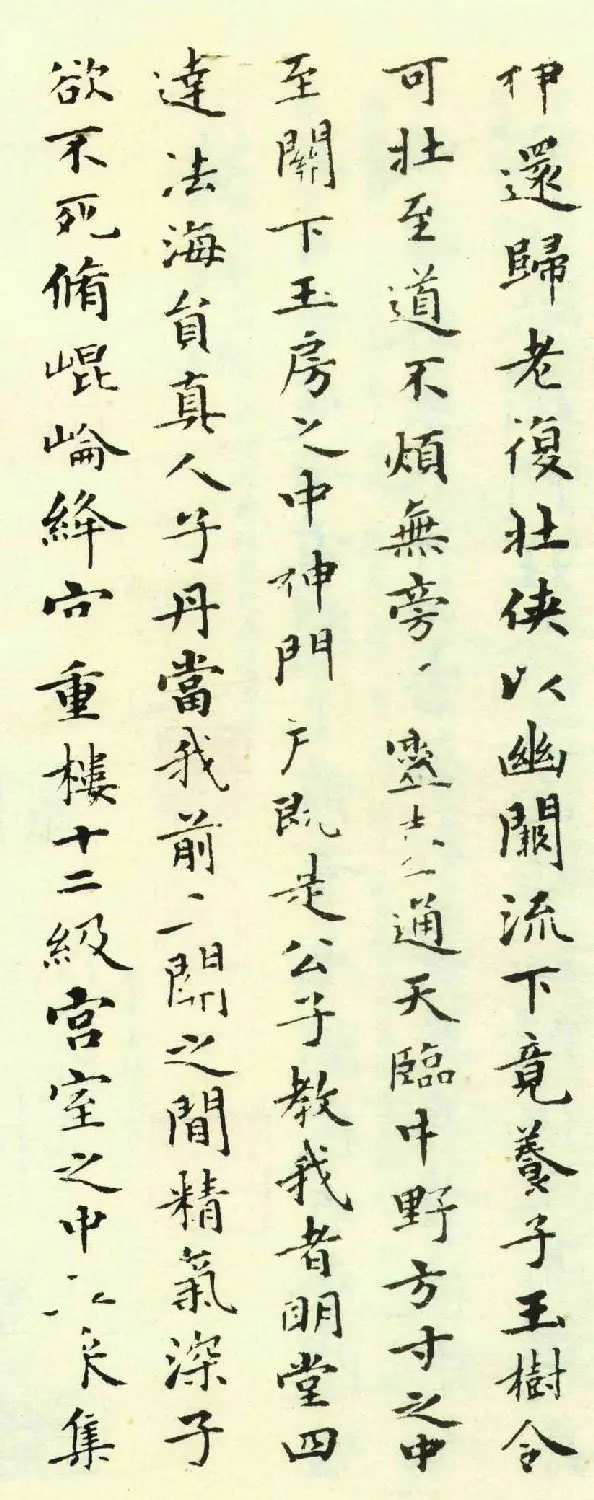 神還歸老復壯俠以幽闕流下竟養子玉樹令
可壯至道不煩無旁靈臺通天臨中野方寸之中
至關下玉房之中神門戶既是公子教我者明堂四
達法海員真人子丹當我前二關之間精氣深子
欲不死脩崐崘絳宮重樓十二級宮室之中五采集